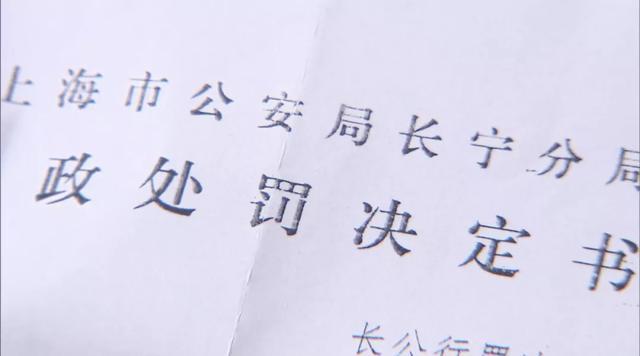 上海市公安局长宁分局
政处罚决定书
长公行罚